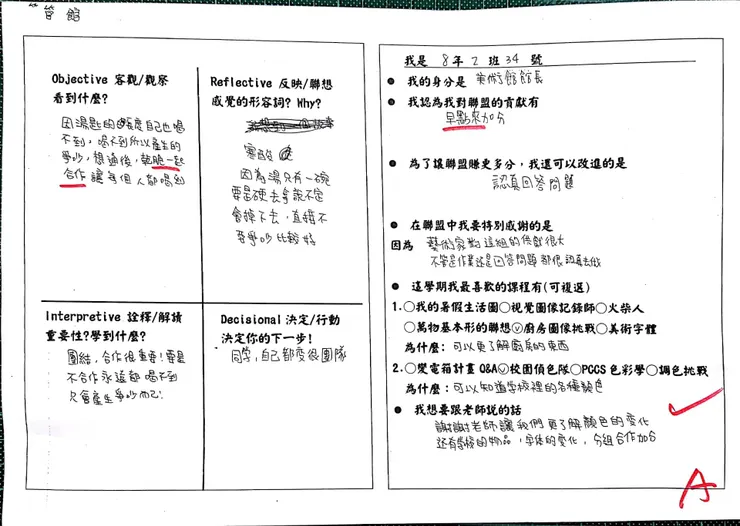 管 館
Objective 客觀/觀察
看到什麼?
因湯匙的長度自己也喝
不到,喝不到所以產生的
爭吵,想過後,乾脆一起
合作讓每個人都喝到
Reflective 反映/聯想
感覺的形容詞? Why?
寒酸
因為湯只有一碗
要是硬去拿說不定
會掉下去,直接不
要爭吵比較好
Interpretive 詮釋/解讀
重要性?學到什麼?
團結,合作很重要!要是
不合作永遠都喝不到
只會產生爭吵而已!
Decisional 決定/行動
決定你的下一步!
同學,自己都變很團隊
我是 8 年 2 班 34 號
● 我的身分是 美術館館長
● 我認為我對聯盟的貢獻有
早點來加分
● 為了讓聯盟賺更多分,我還可以改進的是
認真回答問題
● 在聯盟中我要特別感謝的是
因為 藝術家對這組的供獻很大
不管是作業還是回答問題都很認真去做
● 這學期我最喜歡的課程有(可複選)
1.○我的暑假生活圈○視覺圖像記錄師○火柴人
○萬物基本形的聯想Ⓥ廚房圖像挑戰○美術字體
為什麼: 可以更了解廚房的東西
2.○變電箱計畫 Q&AⓋ校園偵色隊○PCCS 色彩學○調色挑戰
為什麼: 可以知道學校裡的各種顏色
● 我想要跟老師說的話
謝謝老師讓我們更了解顏色的變化
還有學校的物品,字体的變化,分組合作加分
A